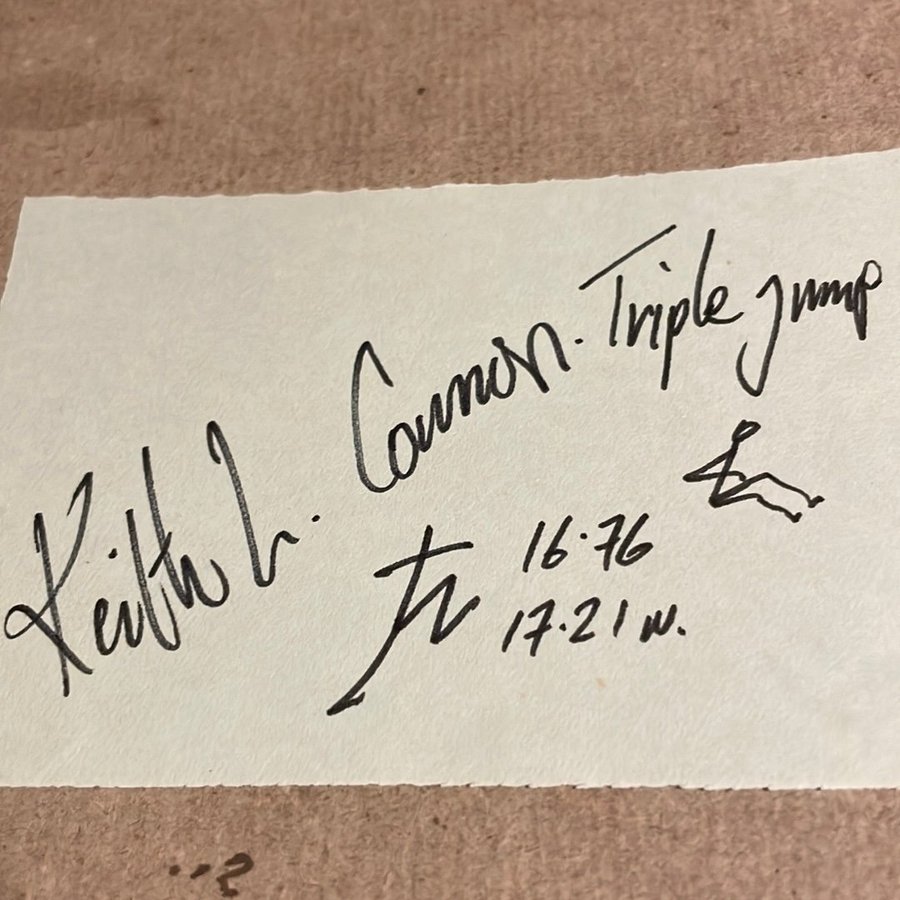 Keith L. Connor. Triple jump
16.76
17.21 w.